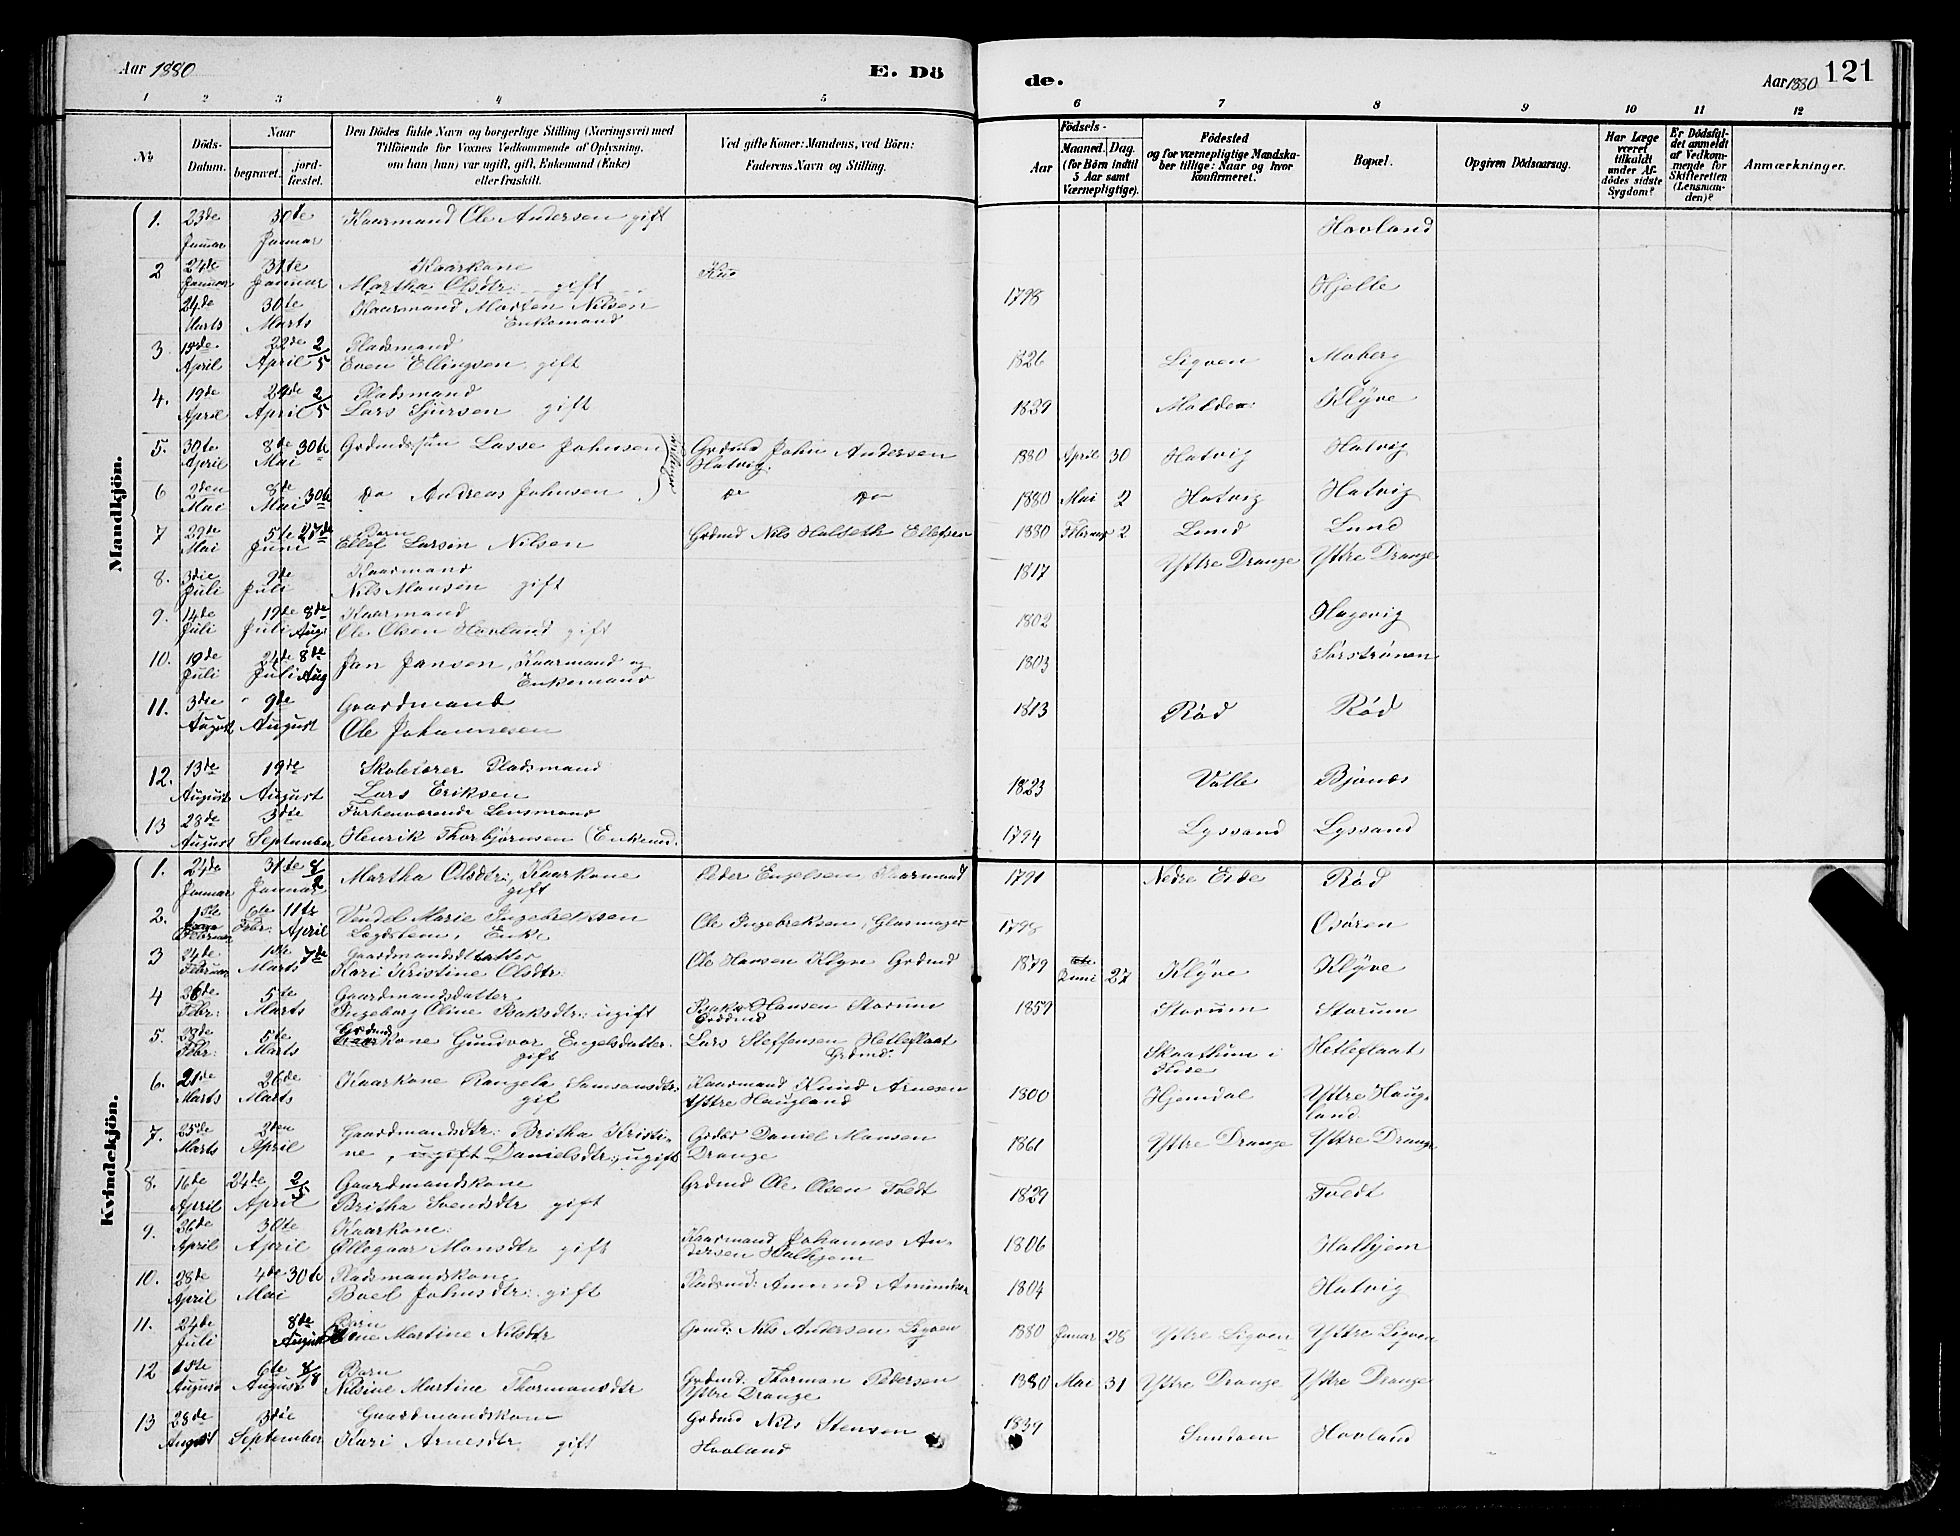 Aar 1880
E. Dö
de.
Aar 1880
121
1 2 3 4 5 6 7 8 9 10 11 12
№
Döds-Datum.
Naar
begravet.
jordfæstet.
Den Dödes fulde Navn og borgerlige Stilling (Næringsvei) med
Tilföiende for Voxnes Vedkommende af Oplysning,
om han (hun) var ugift, gift, Enkemand (Enke)
eller fraskilt.
Ved gifte Koner: Mandens, ved Börn:
Faderens Navn og Stilling.
Födsels-
Aar
Maaned. Dag.
(for Börn indtil
5 Aar samt
Værnepligtige).
Födested
og for værnepligtige Mandska-
ber tillige: Naar og hvor
konfirmeret.
Bopæl.
Opgiven Dödsaarsag.
Har Læge
været
tilkaldt
under Af-
dödes sidste
Sygdom?
Er Dödsfal-
det anmeldt
af Vedkom-
mende for
Skifteretten
(Lensman-
den)?
Anmærkninger.
Mandkjön.
1. 23de Januar 30te Januar Kaarmand Ole Andersen gift Hovland
2 24de Januar 31te Januar Kaarkone
Martha Olsdtr: gift 1798 Hjelle
24de Marts 30te Marts Kaarmand Morten Nilsen
Enkemand
3. 15de April 22de April 2/5 Pladsmand
Even Ellingsen gift 1826 Ligven Moberg
4. 19de April 24de April 2/5 Pladsmand
Lars Sjursen gift 1829 Molde Klyve
5. 30te April 8de Mai 30te Grdmdssøn Lasse Johnsen Grdmd John Andersen
Hatvig. 1880 April 30 Hatvig Hatvig
6 2den Mai 8de Mai 30te Do Andreas Johnsen Do Do 1880 Mai 2 Hatvig Hatvig
7 29de Mai 5te Juni 27de Barn
Ellef Larsin Nilsen Grdmd Nils Halseth Ellefsen 1880 Februar 2 Lund Lund
8. 3die Juli 9de Juli Kaarmand
Nils Monsen gift 1817 Yttre Drange Yttre Drange
9. 14de Juli 19de Juli 8de Aug: Kaarmand
Ole Olsen Hovland gift 1802 Hagevig
10. 19de Juli 24de Juli 8de Aug Jan Jansen, Kaarmand og
Enkemand 1803 Sørstrønen
11. 3die August 9de August Gaardmand
Ole Johannesen 1813 Rød Rød
12. 13de August 19de August Skolelærer Pladsmand
Lars Eriksen 1823 Valle Bjønes
13 28de August 3die September Forhenværende Lensmand
Henrik Thorbjørnsen (Enkemd. 1794 Lyssand Lyssand
Kvindekjön.
1. 24de Januar 31te Januar 8/2 Martha Olsdtr: Kaarkone
gift Peder Engelsen Kaarmand 1791 Nedre Eide Rød
2. 1ste Februar 6te Febr: 11te April Vendel Marie Ingebrektsen
Lægdslem, Enke Ole Ingebreksen, Glasmager 1798 Osøren
3 24de Februar 1ste Marts 7de Gaardmandsdatter
Kari Kristine Olsdtr: Ole Hansen Klyve Grdmd 1879 Juni 27 Klyve Klyve
4 28de Febr: 5te Marts Gaardmandsdatter
Ingeborg Oline Isaksdtr: ugift Isak Hansen Storum
Grdmd 1859 Storum Storum
5. 29de Febr: 5te Marts Grdmds
kone Gundvor Engelsdatter
gift Lars Steffensen Hetleflaat
Grdmd. Skaathun i
Fuse Hetleflaat
6. 21de Marts 26de Marts Kaarkone Rangela Samsonsdtr:
gif Kaarmand Knud Arnesen
Yttre Haugland 1800 Hjemdal Yttre Haug-
land
7. 25de Marts 2den April Gaardmandsdtr: Britha Kristi-
ne, ugift Danielsdtr: ugift Grdbr Daniel Monsen
Drange 1861 Yttre Drange Yttre Drange
8. 16de April 24de April 2/5 Gaardmandskone
Britha Svendsdtr gift Grdmd Ole Olsen Tvedt 1829 Tvedt
9. 26de April 30te April Kaarkone
Ollegaar Monsdtr gift Kaarmand Johannes An-
dersen Halhjem 1806 Halhjem
10. 28de April 4de Mai 30te Pladsmandskone
Boel Johnsdtr: gift Pladsmd: Amund Amundsen 1804 Hatvig
11. 24de Juli 8de August Barn
Martine Nilsdtr Grmd: Nils Andersen Ligven 1880 Januar 28 Yttre Ligven Yttre Ligven
12 15te August 6te August 8/8 Barn
Nilsine Martine Thormansdtr Grdmd: Thorman Pedersen
Yttre Drange 1880 Mai 31 Yttre Drange Yttre Drange
13 28de August 3die September Gaardmandskone
Kari Arnesdtr. gift Grdmd Nils Stensen
Hovland 1839 Sundven Hovland